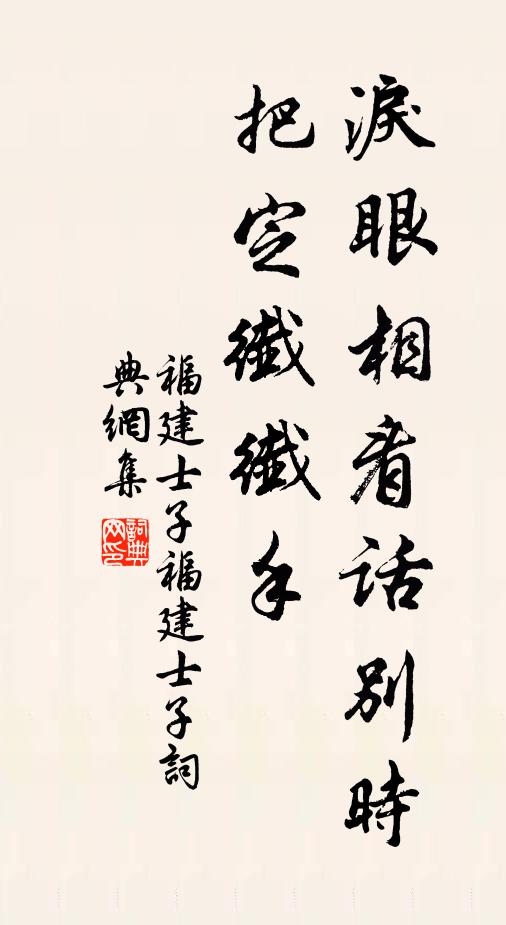 淚眼相看話別時
把定纖纖手
福建士子福建士子詞
典網集
詞典網印